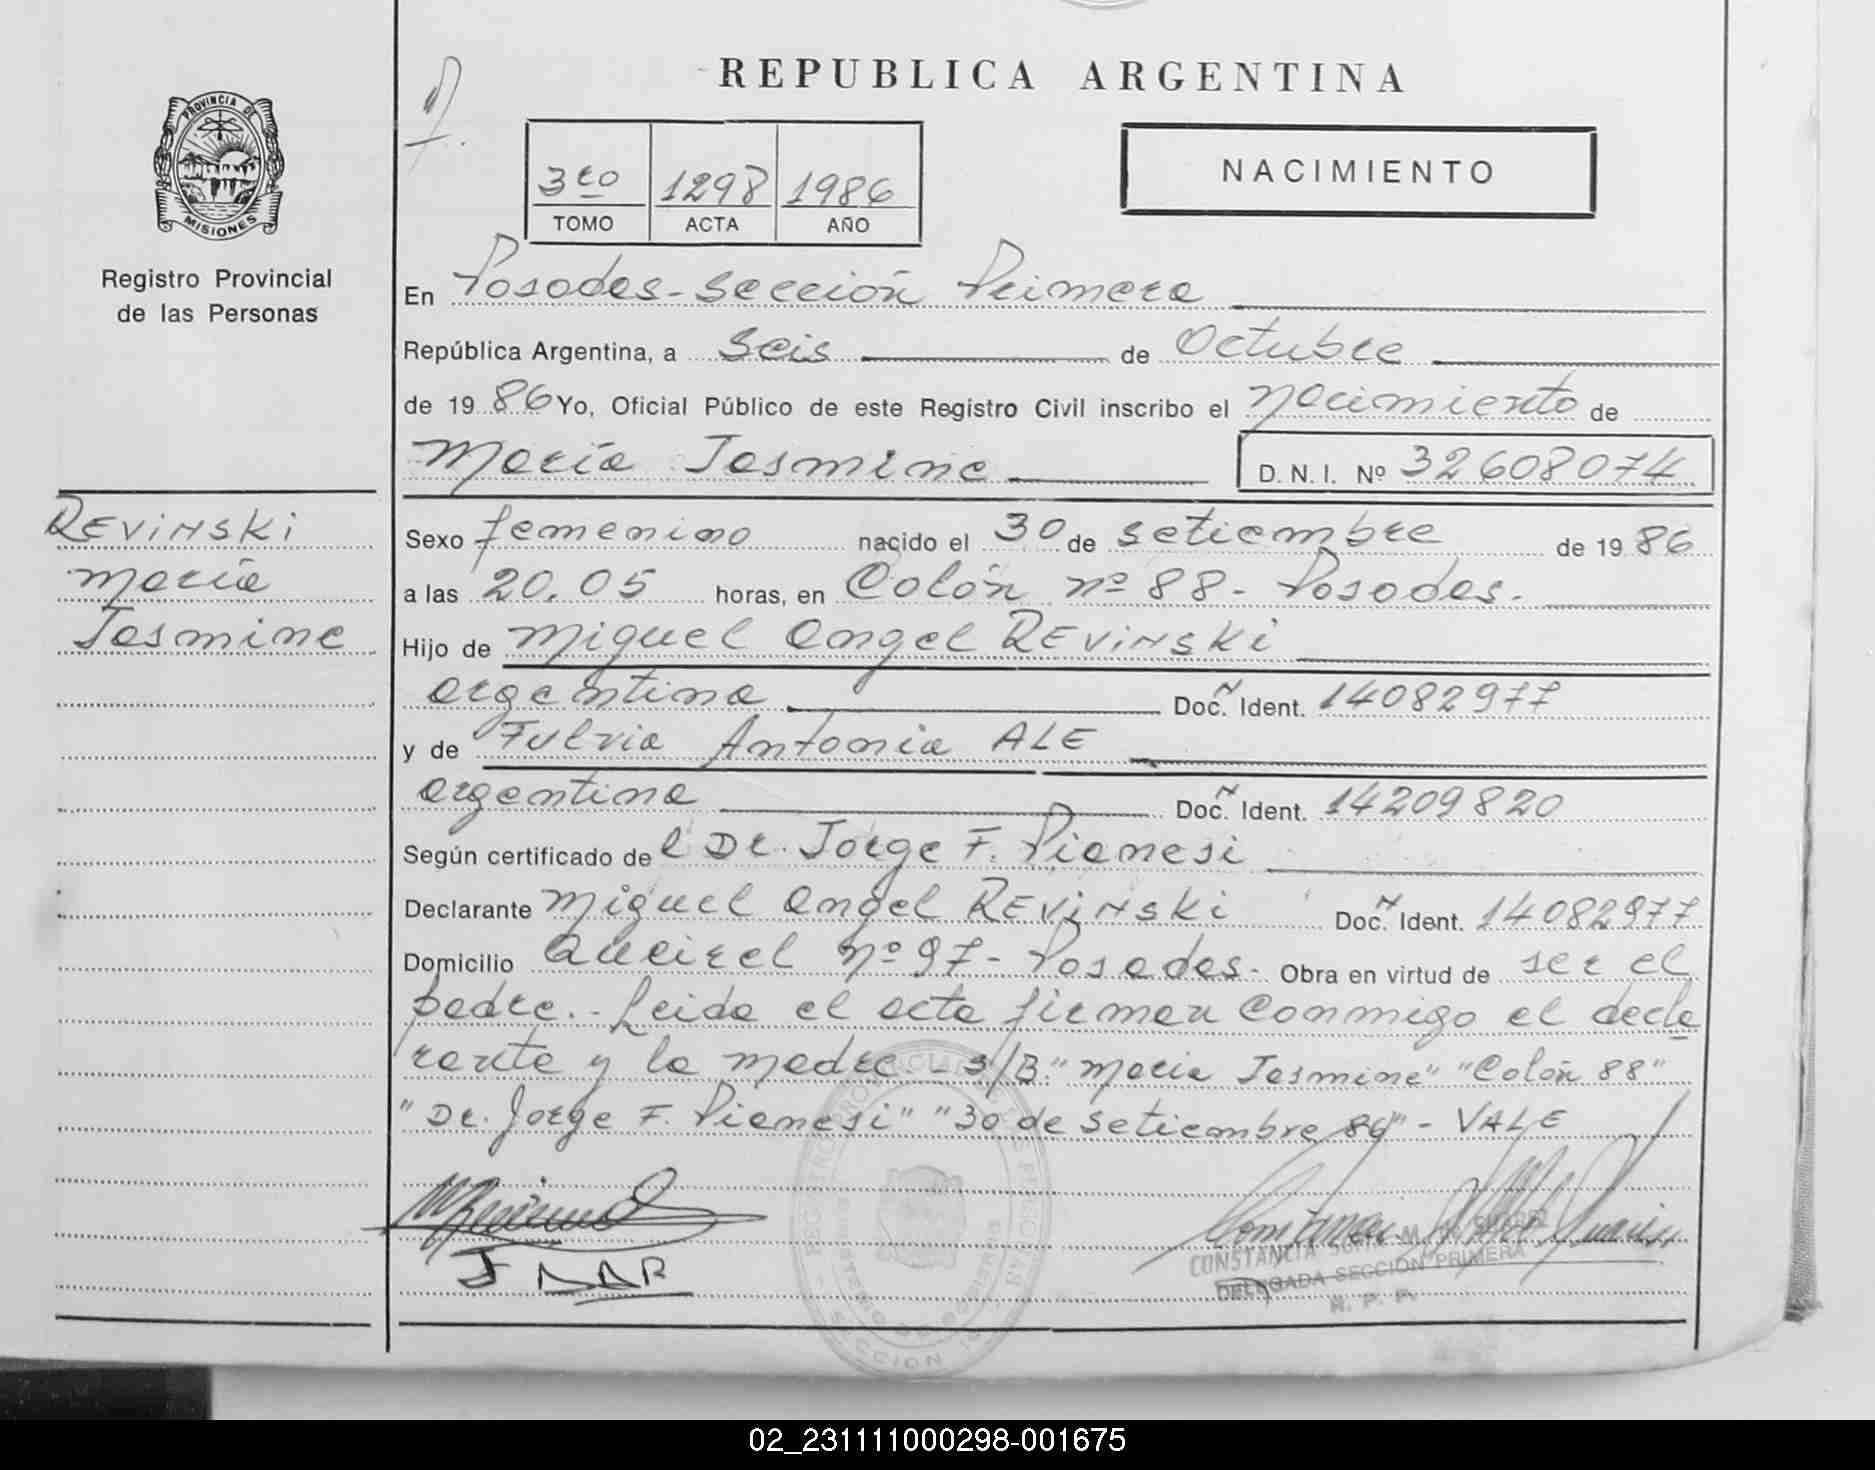 REPUBLICA ARGENTINA
PROVINCIA DE
MISIONES
Registro Provincial
de las Personas
3ro 1298 1986
TOMO ACTA AÑO
NACIMIENTO
En Posadas-Sección Primera
República Argentina, a seis de Octubre
de 19 86 Yo, Oficial Público de este Registro Civil inscribo el nacimiento de
María Jasmine D.N.I. Nº 32608074
REVINSKI
María
Jasmine
Sexo femenino nacido el 30 de setiembre de 19 86
a las 20.05 horas, en Colón nº 88 - Posadas.
Hijo de Miguel Angel REVINSKI
argentina Doc. Ident. 14082977
y de Fulvia Antonia ALE
argentina Doc. Ident. 14209820
Según certificado de l Dr. Jorge F. Pianesi
Declarante Miguel Angel REVINSKI Doc. Ident. 14082977
Domicilio Queirel nº 97 - Posadas. Obra en virtud de ser el
padre.- Leida el acta firman conmigo el decla
rante y la madre - S/B. "María Jasmine" "Colón 88"
"Dr. Jorge F. Pianesi" "30 de setiembre 86" - VALE
CONSTANCIA SUAREZ
DELEGADA SECCION PRIMERA
R. P. P.
02_231111000298-001675